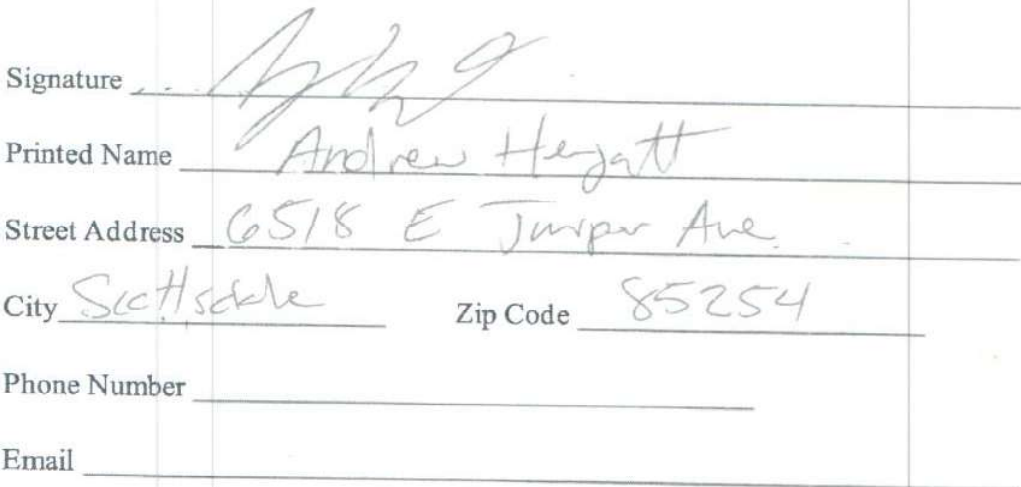 Signature
Printed Name Andrew
Street Address 6518 E Juniper Ave.
City Scottsdale Zip Code 85254
Phone Number
Email